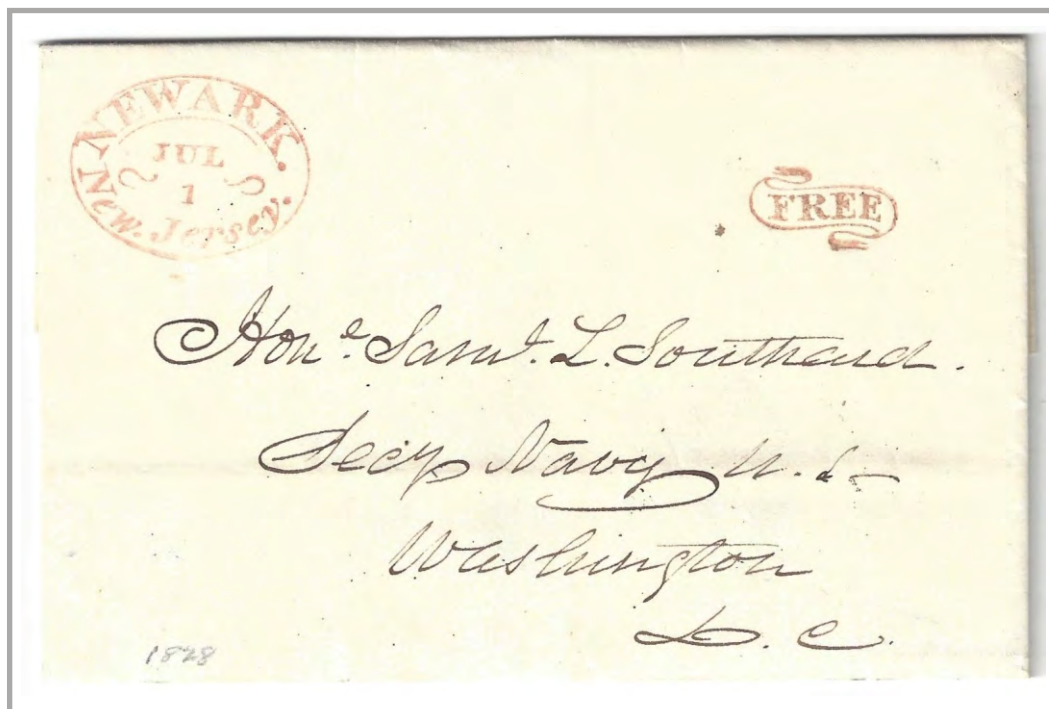 NEWARK.
JUL
1
New. Jersey.
FREE
Hon.e Sam.l L. Southard.
Secy Navy U. S
Washington
D. C.
1828